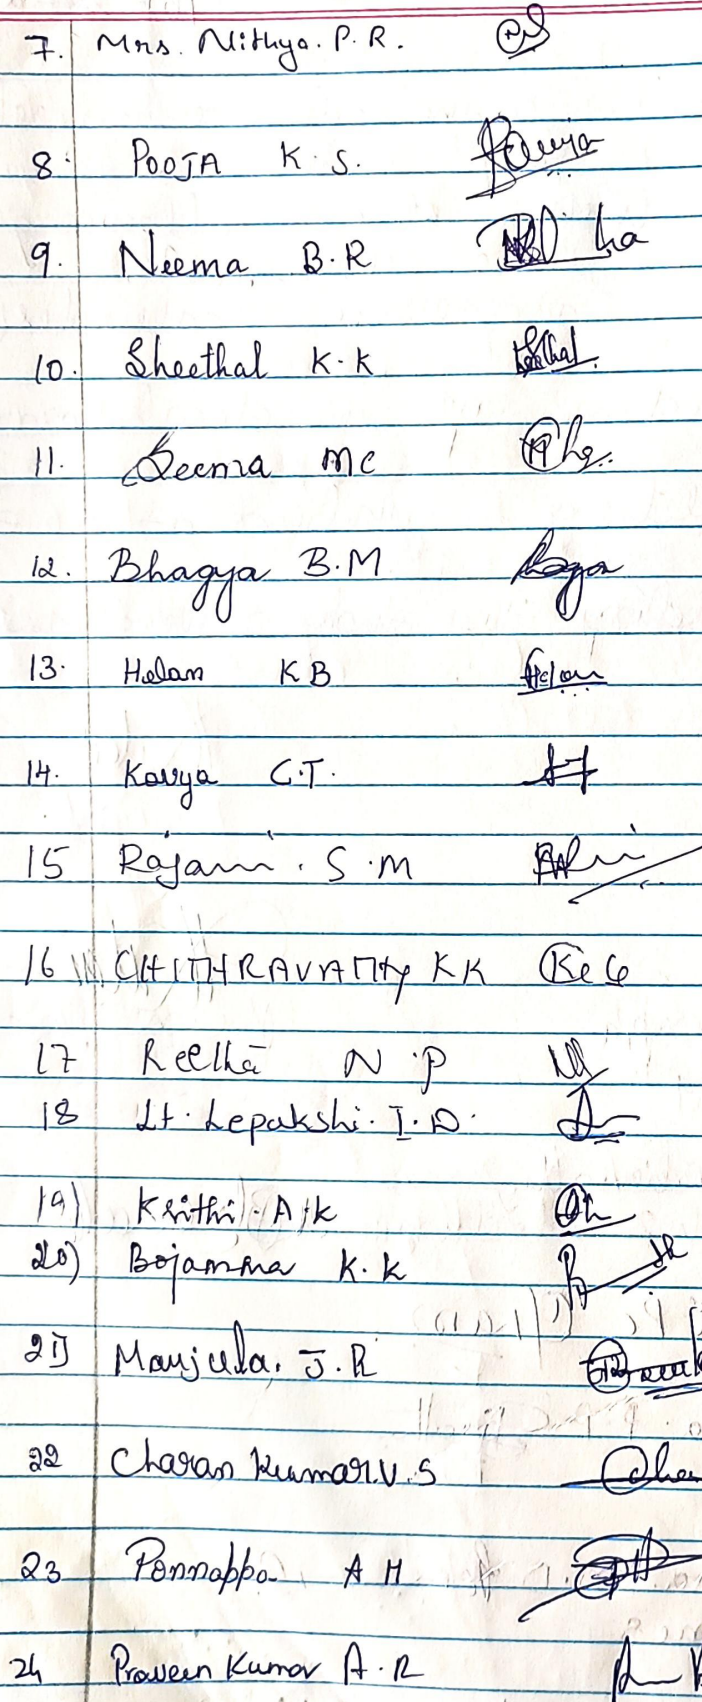 7. Mrs. Nithya. P. R.
8. POOJA K. S.
9. Neema B.R
10. Sheethal K.K
11. Seema MC
12. Bhagya B.M
13. Helan KB Helan
14. Kavya C.T.
15 Rajani. S.M
16 CHITHRAVATHy KK
17 N.P
18 Lt. Lepakshi. I. D.
19) Krithi. A.K
20) Bojamma K.K
21) Manjula. J.R
22 Charan Kumar.V.S
23 Ponnappa A H
24 Praveen Kumar A.R